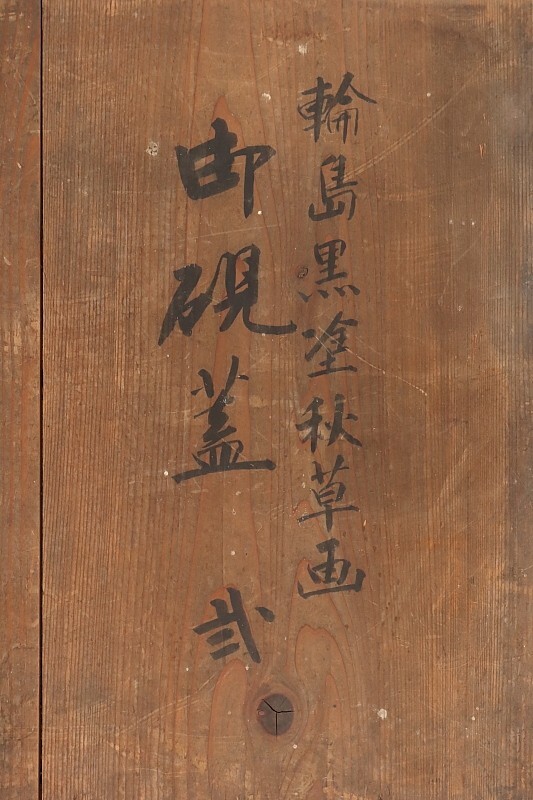 輪島黒塗秋草画
御硯蓋 弐